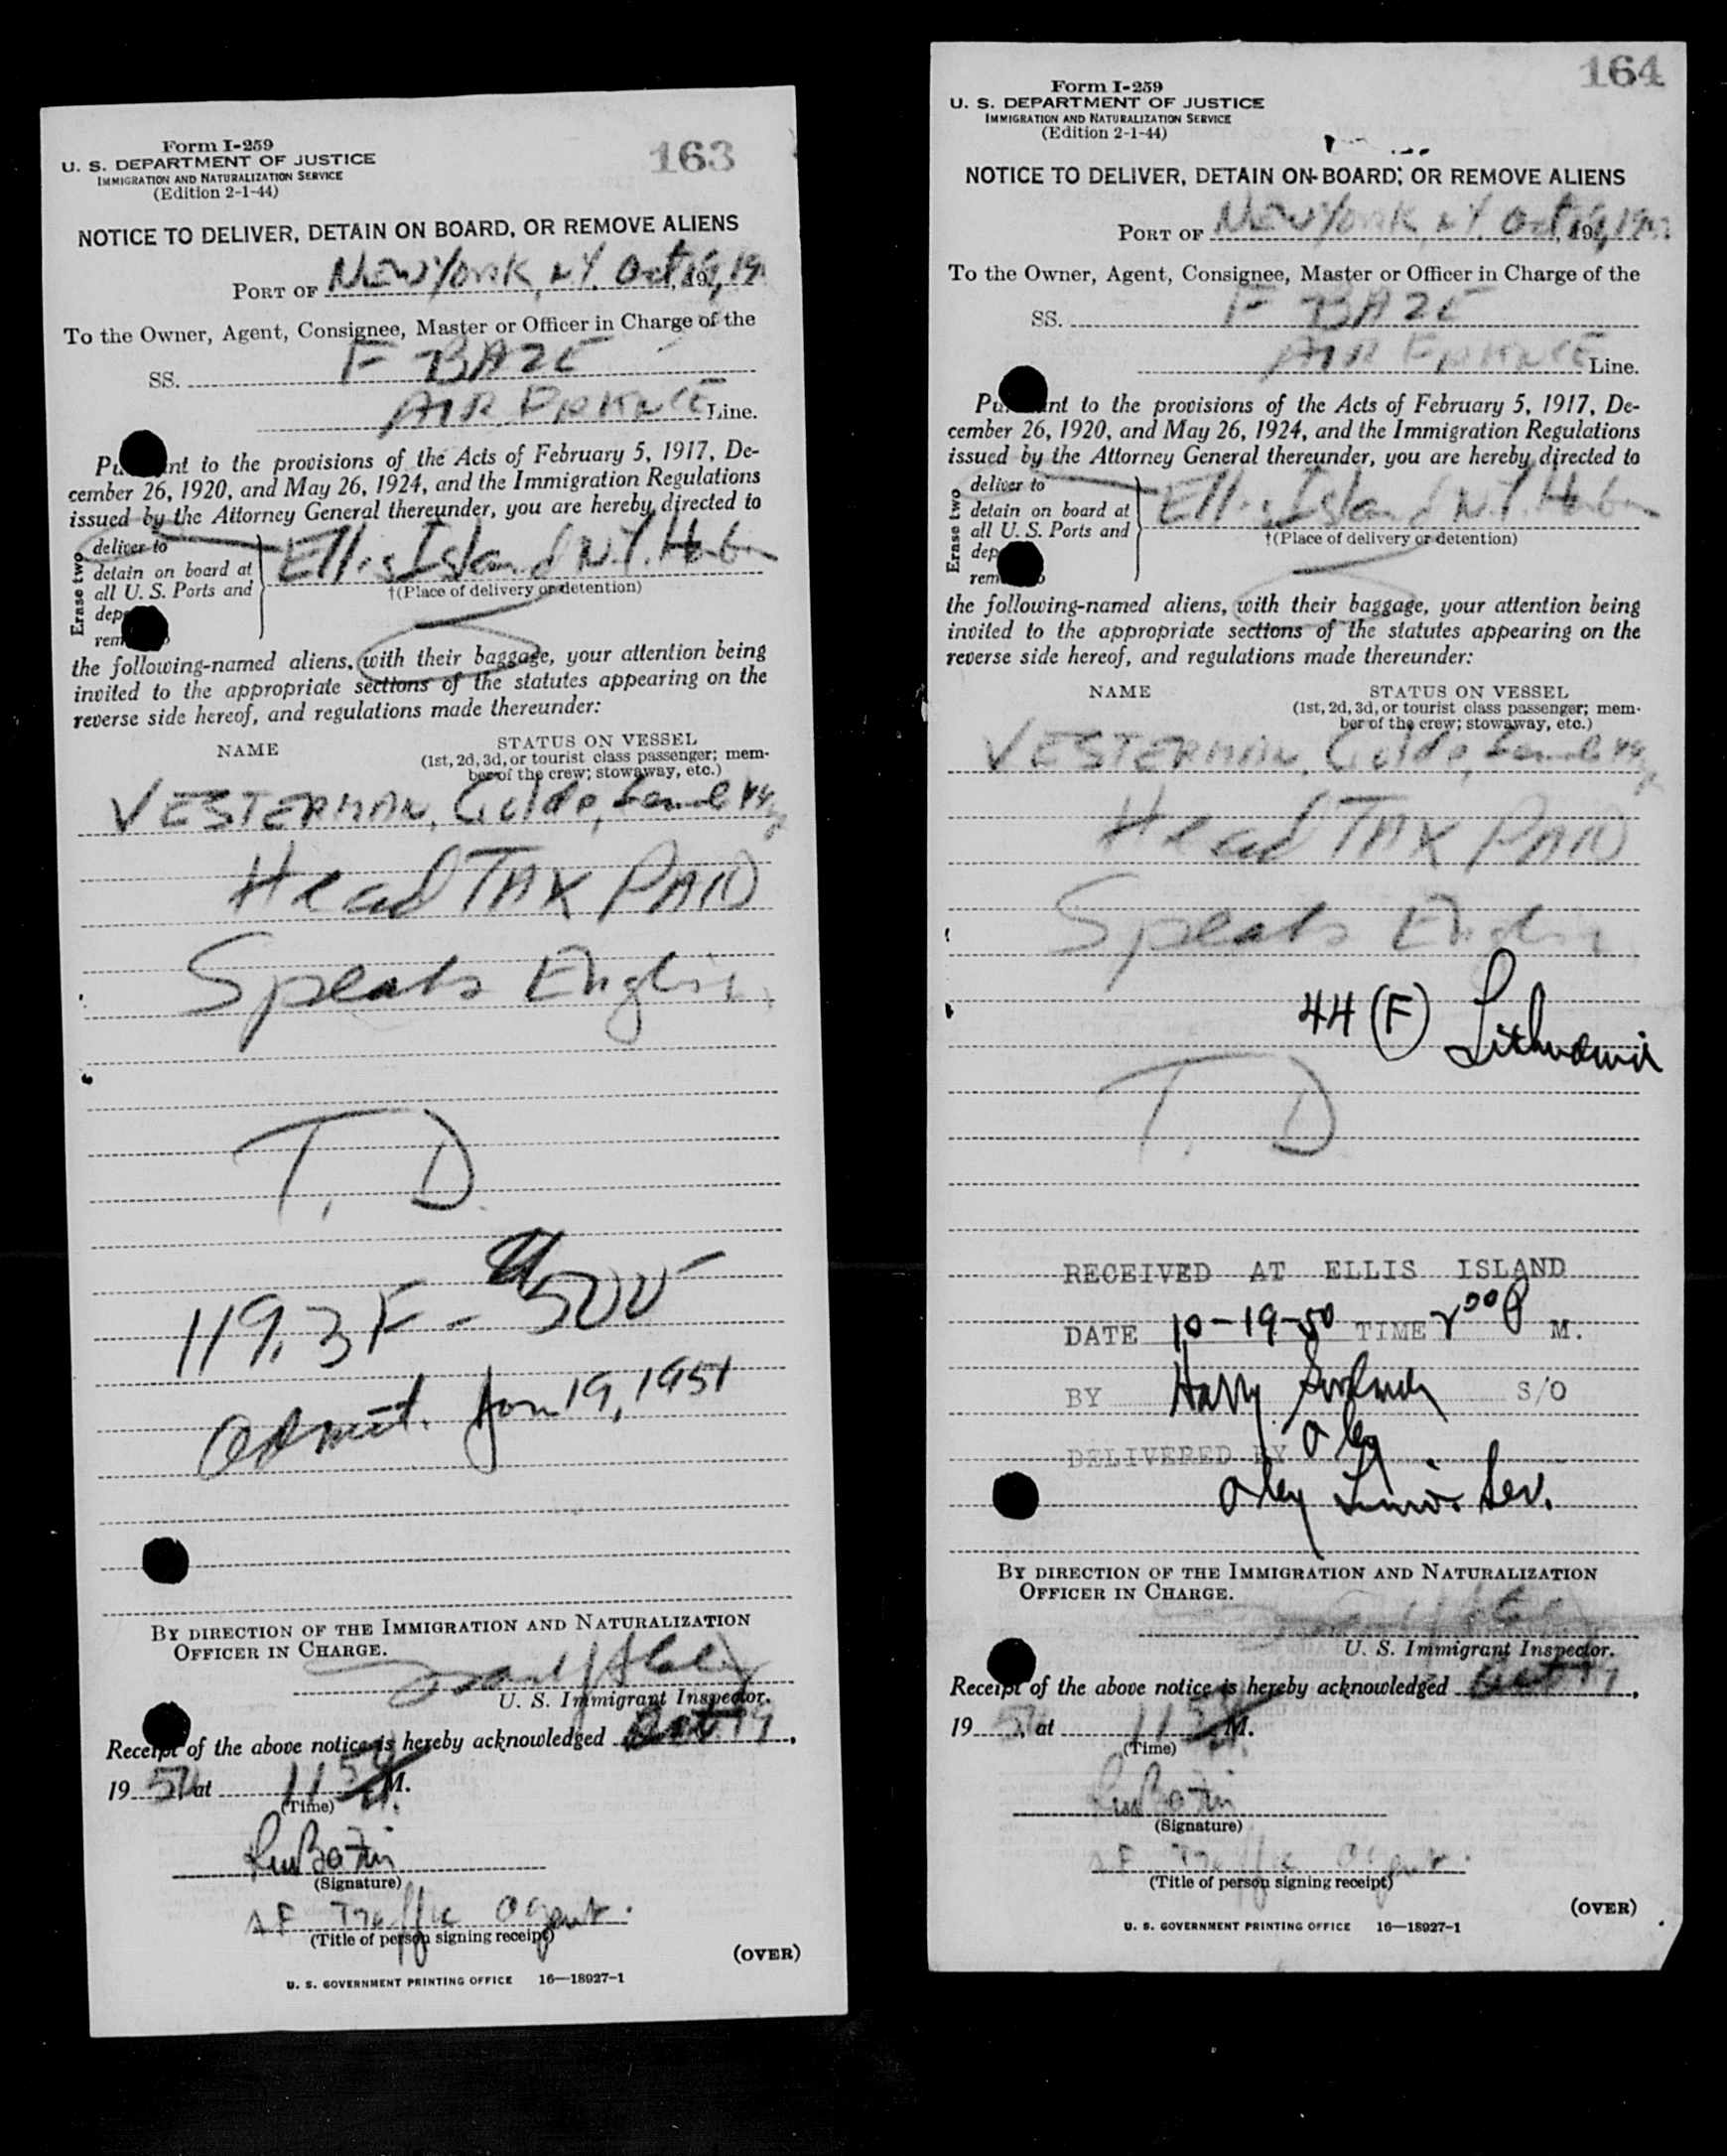 163
Form I-259
U. S. DEPARTMENT OF JUSTICE
IMMIGRATION AND NATURALIZATION SERVICE
(Edition 2-1-44)
NOTICE TO DELIVER, DETAIN ON BOARD, OR REMOVE ALIENS
PORT OF New York, N.Y. Oct 19, 19
To the Owner, Agent, Consignee, Master or Officer in Charge of the
SS. F BAZE
AIR FRANCE Line.
Pu nt to the provisions of the Acts of February 5, 1917, De-
cember 26, 1920, and May 26, 1924, and the Immigration Regulations
issued by the Attorney General thereunder, you are hereby directed to
Erase two
deliver to
detain on board at
all U. S. Ports and
dep
rem
Ellis Island N.Y. Harbor
†(Place of delivery or detention)
the following-named aliens, with their baggage, your attention being
invited to the appropriate sections of the statutes appearing on the
reverse side hereof, and regulations made thereunder:
NAME STATUS ON VESSEL
(1st, 2d, 3d, or tourist class passenger; mem-
ber of the crew; stowaway, etc.)
VESTERMAN, Golda, female 44
Head TAX PAID
Speaks English
T. D.
119.3F - 500
Admit. Jan 19, 1951
BY DIRECTION OF THE IMMIGRATION AND NATURALIZATION
OFFICER IN CHARGE.
U. S. Immigrant Inspector.
Receipt of the above notice is hereby acknowledged Oct 19,
19 50, at 11 M.
(Time)
(Signature)
AF Traffic Agent.
(Title of person signing receipt)
(OVER)
U. S. GOVERNMENT PRINTING OFFICE 16—18927-1
164
Form I-259
U. S. DEPARTMENT OF JUSTICE
IMMIGRATION AND NATURALIZATION SERVICE
(Edition 2-1-44)
NOTICE TO DELIVER, DETAIN ON BOARD, OR REMOVE ALIENS
PORT OF New York, N.Y. Oct 19, 19
To the Owner, Agent, Consignee, Master or Officer in Charge of the
SS. F BAZE
AIR FRANCE Line.
Pu nt to the provisions of the Acts of February 5, 1917, De-
cember 26, 1920, and May 26, 1924, and the Immigration Regulations
issued by the Attorney General thereunder, you are hereby directed to
Erase two
deliver to
detain on board at
all U. S. Ports and
dep
rem
Ellis Island N.Y. Harbor
†(Place of delivery or detention)
the following-named aliens, with their baggage, your attention being
invited to the appropriate sections of the statutes appearing on the
reverse side hereof, and regulations made thereunder:
NAME STATUS ON VESSEL
(1st, 2d, 3d, or tourist class passenger; mem-
ber of the crew; stowaway, etc.)
VESTERMAN, Golda, female 44
Head TAX PAID
Speaks English
44 (F) Lithuania
T. D
RECEIVED AT ELLIS ISLAND
DATE 10-19-50 TIME 2 00 P M.
BY Harry S/O
DELIVERED BY
BY DIRECTION OF THE IMMIGRATION AND NATURALIZATION
OFFICER IN CHARGE.
U. S. Immigrant Inspector.
Receipt of the above notice is hereby acknowledged Oct 19,
19 50, at 11 M.
(Time)
(Signature)
AF Traffic Agent.
(Title of person signing receipt)
(OVER)
U. S. GOVERNMENT PRINTING OFFICE 16—18927-1